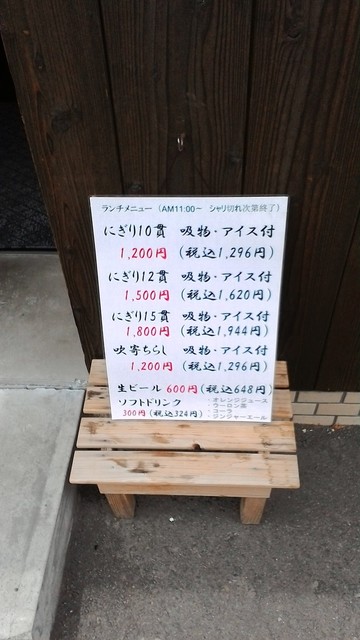 ランチメニュー（AM11:00～ シャリ切れ次第終了）
にぎり10貫 吸物・アイス付
1,200円（税込1,296円）
にぎり12貫 吸物・アイス付
1,500円（税込1,620円）
にぎり15貫 吸物・アイス付
1,800円（税込1,944円）
吹寄ちらし 吸物・アイス付
1,200円（税込1,296円）
生ビール 600円（税込648円）
ソフトドリンク
300円（税込324円）
・オレンジジュース
・ウーロン茶
・コーラ
・ジンジャーエール